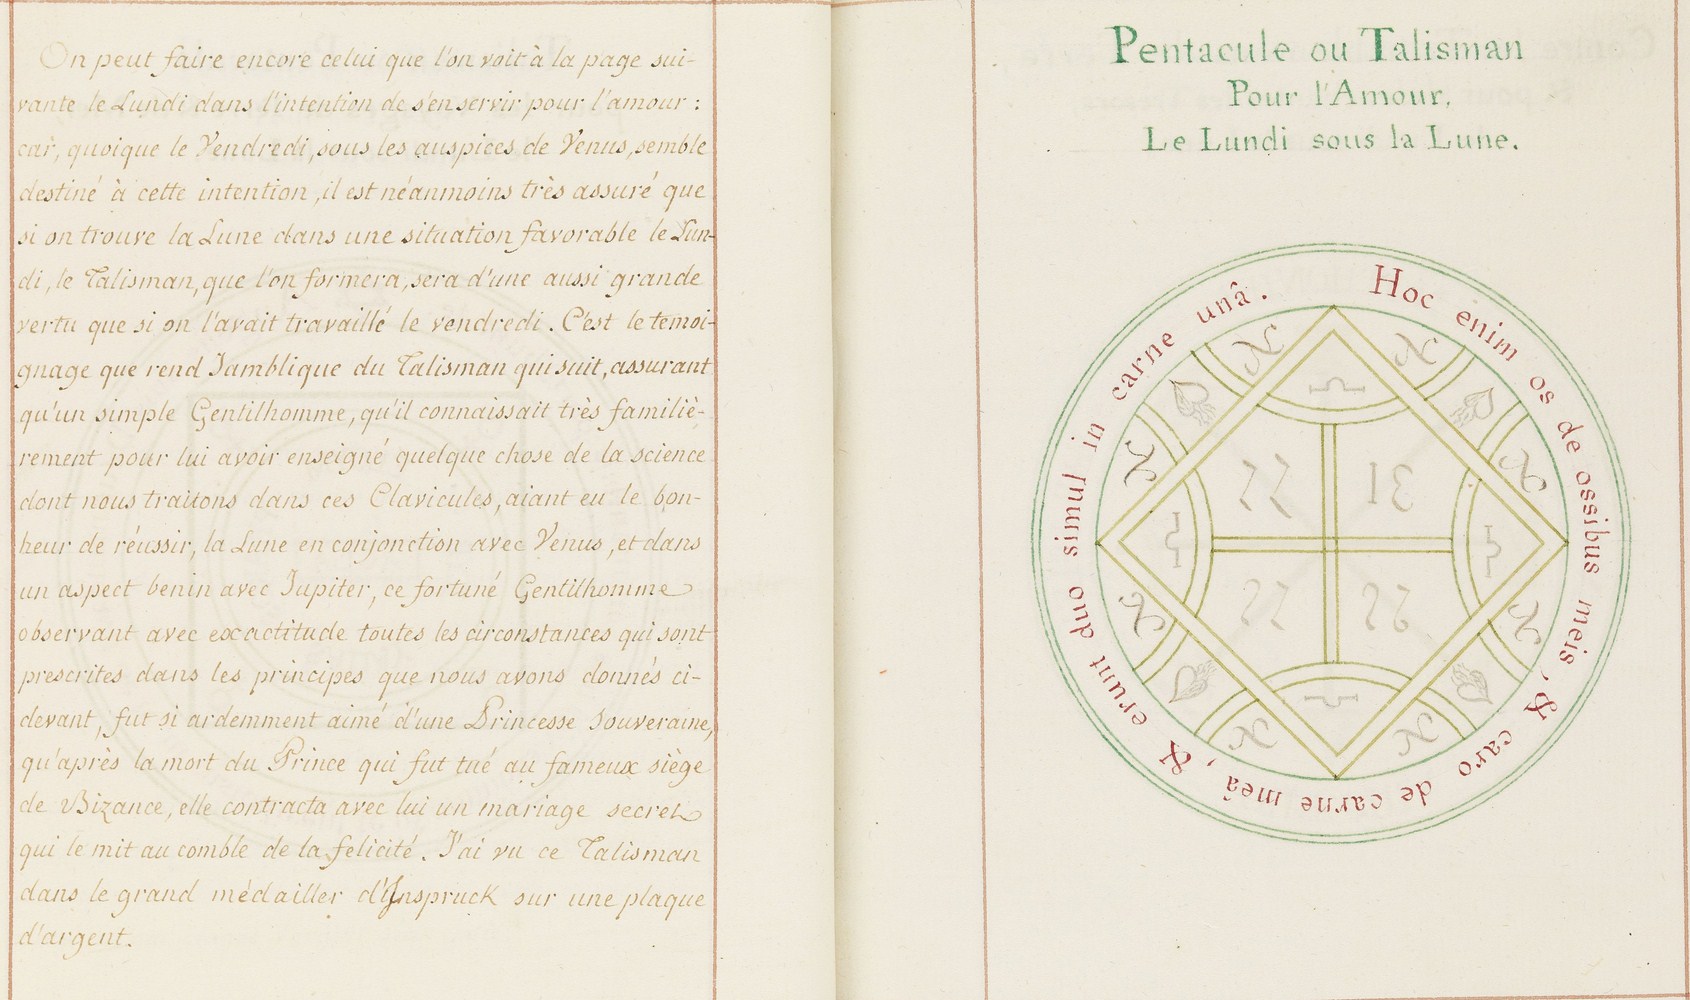 On peut faire encore celui que l'on voit à la page sui-
vante le Lundi dans l'intention de s'en servir pour l'amour :
car, quoique le Vendredi, sous les auspices de Venus, semble
destiné à cette intention, il est néanmoins très assuré que
si on trouve la Lune dans une situation favorable le Lun-
di, le Talisman, que l'on formera, sera d'une aussi grande
vertu que si on l'avait travaillé le vendredi. C'est le temoi-
gnage que rend Jamblique du Talisman qui suit, assurant
qu'un simple Gentilhomme, qu'il connaissait très familiè-
rement pour lui avoir enseigné quelque chose de la science
dont nous traitons dans ces Clavicules, aiant eu le bon-
heur de réussir, la Lune en conjonction avec Venus, et dans
un aspect benin avec Jupiter, ce fortuné Gentilhomme
observant avec exactitude toutes les circonstances qui sont
prescrites dans les principes que nous avons donnés ci-
devant, fut si ardemment aimé d'une Princesse Souveraine,
qu'après la mort du Prince qui fut tué au fameux siège
de Bizance, elle contracta avec lui un mariage secret
qui le mit au comble de la felicité. J'ai vu ce Talisman
dans le grand médailler d'Inspruck sur une plaque
d'argent.
Pentacule ou Talisman
Pour l'Amour,
Le Lundi sous la Lune.
Hoc enim os de ossibus meis, & caro de carne meâ, & erunt duo simul in carne unâ.